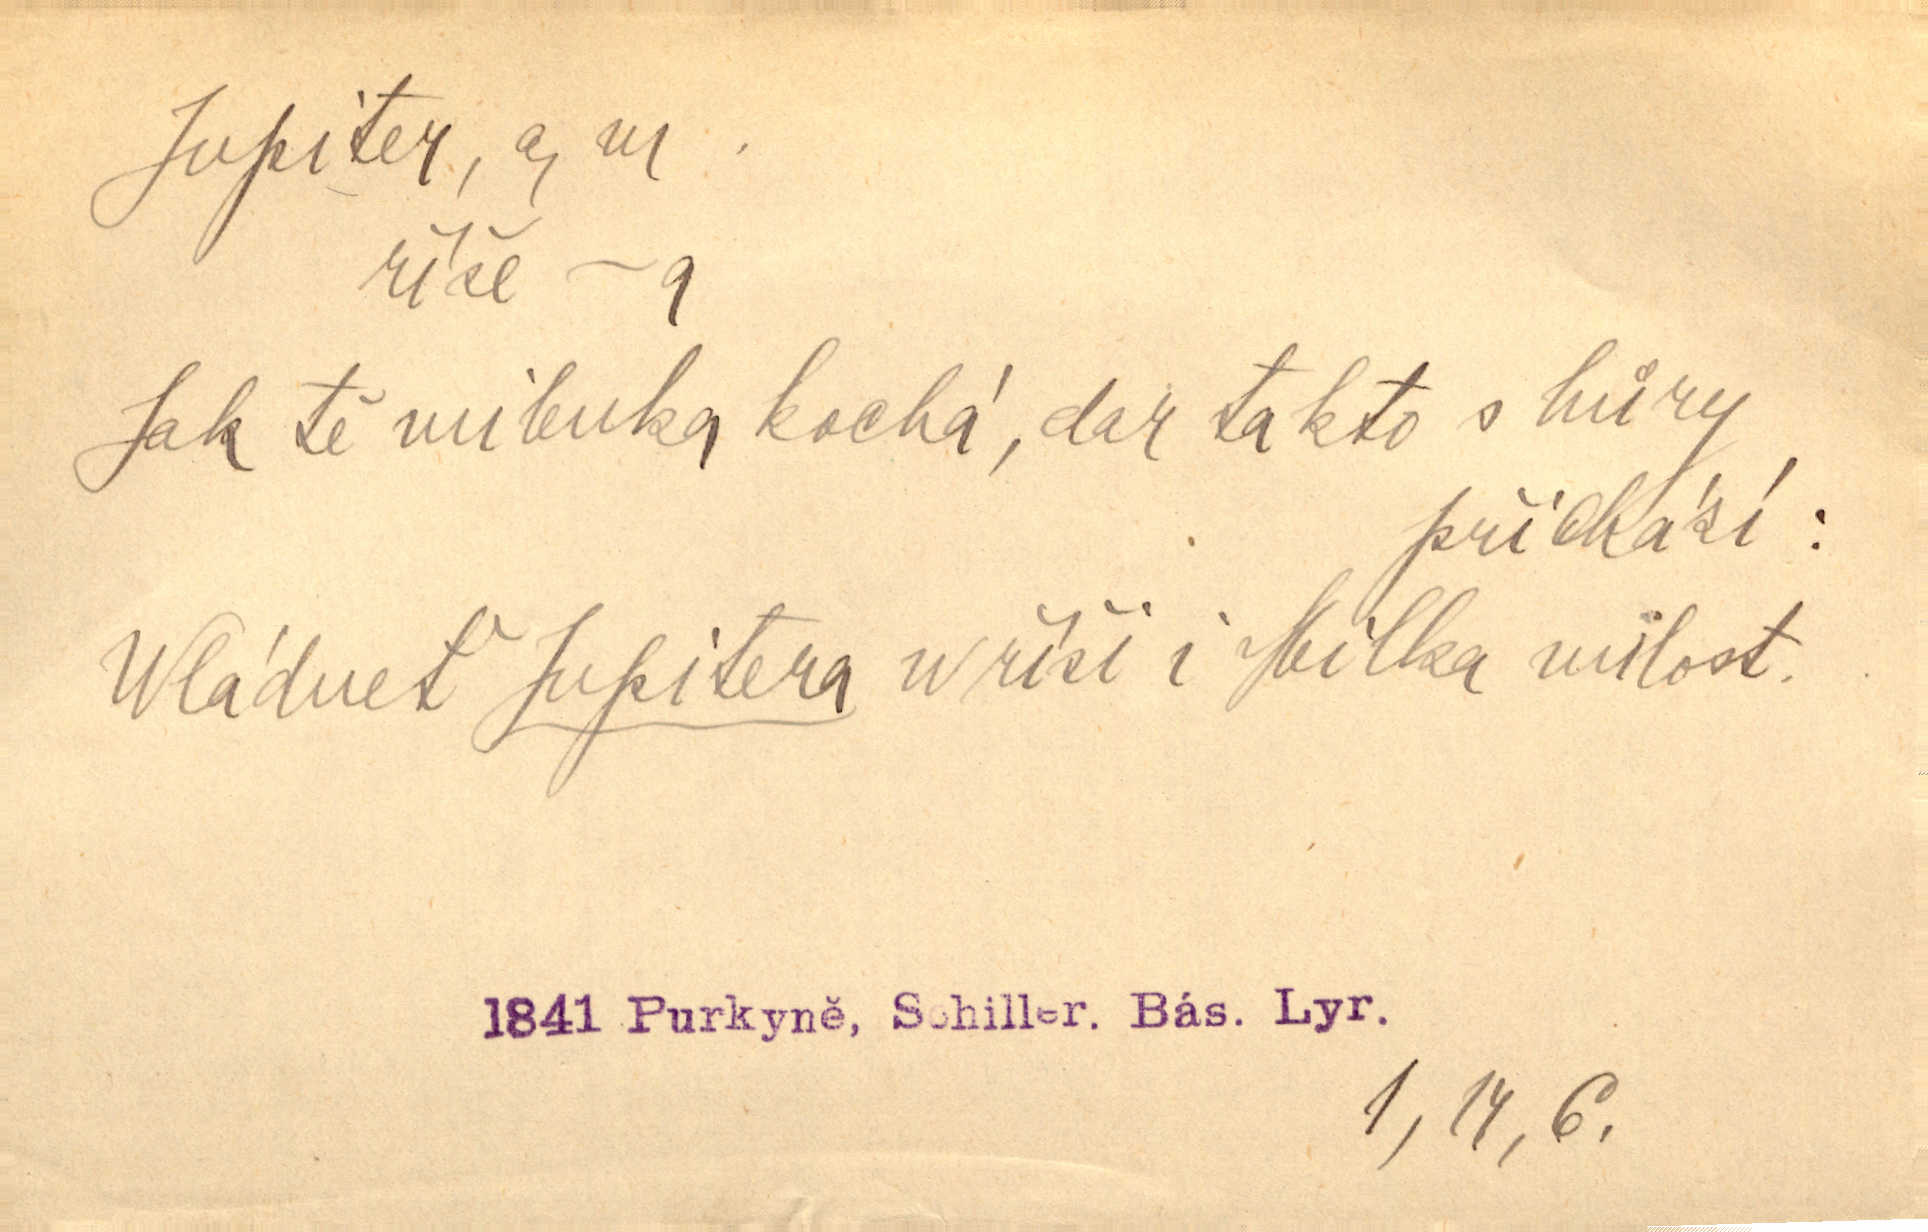 Jupiter, a, m.
říše ~a
Jak tě milenka kochá, dar takto s hůry
přichází:
Wládneť Jupitera w říši i Milka milost.
1841 Purkyně, Schiller. Bás. Lyr.
1, 14, 6.